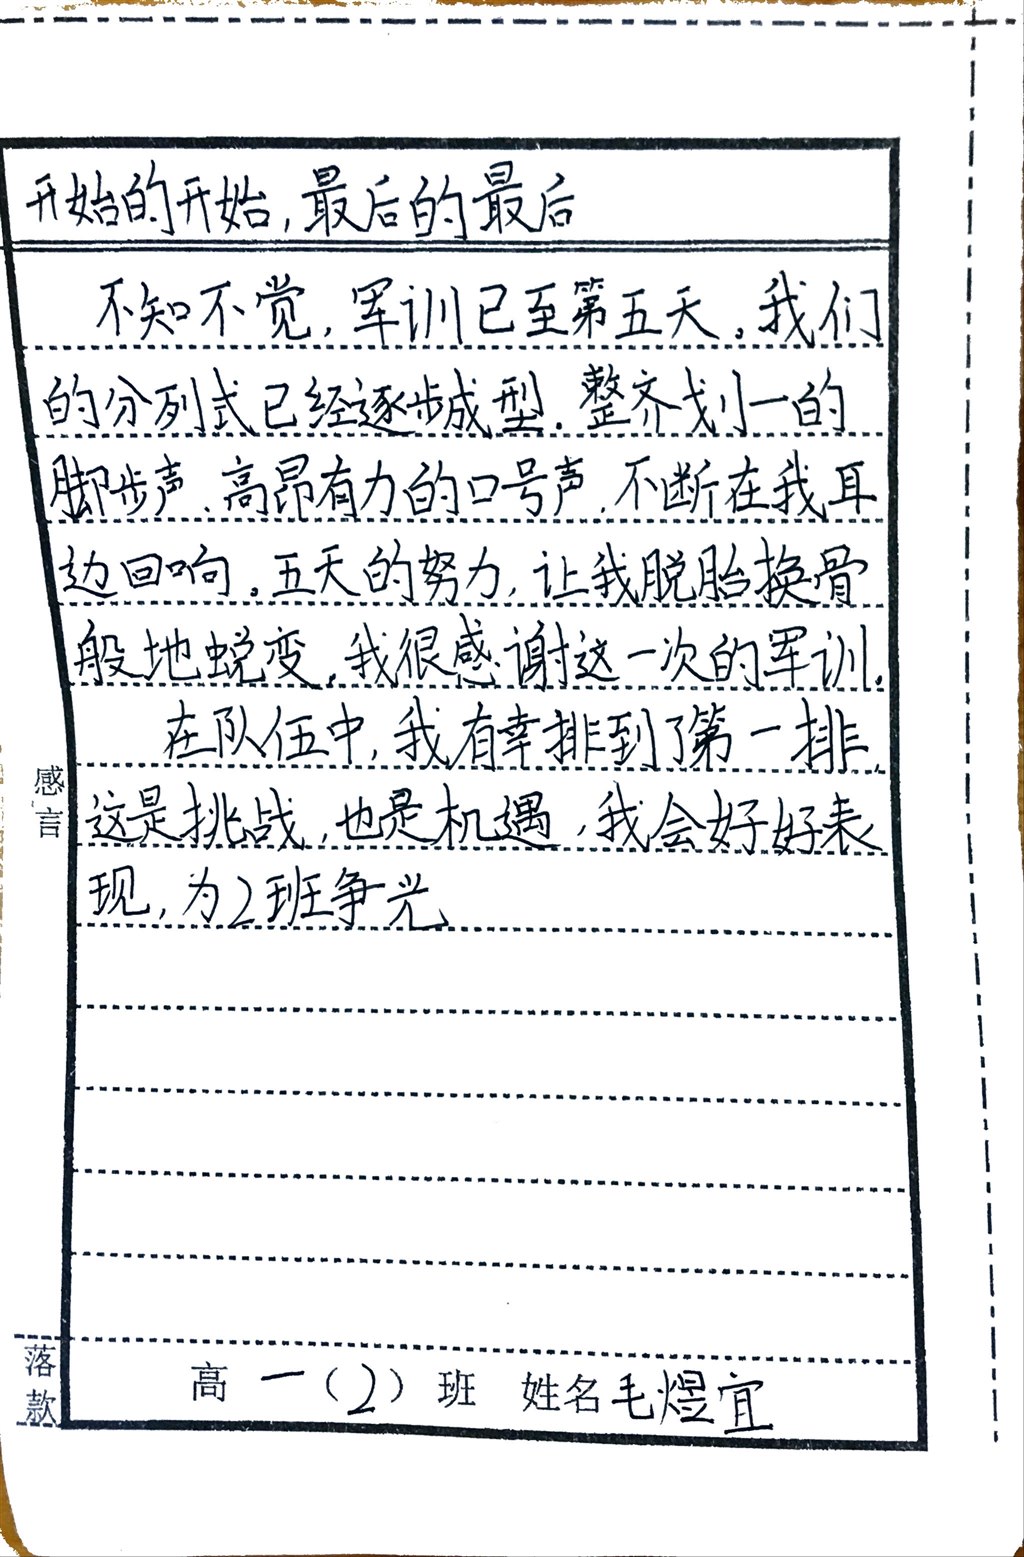 开始的开始，最后的最后
不知不觉，军训已至第五天。我们
的分列式已经逐步成型.整齐划一的
脚步声、高昂有力的口号声，不断在我耳
边回响。五天的努力，让我脱胎换骨
般地蜕变。我很感谢这一次的军训.
在队伍中，我有幸排到了第一排，
这是挑战，也是机遇，我会好好表
现，为2班争光
感言
落款
高一（2）班 姓名毛煜宜